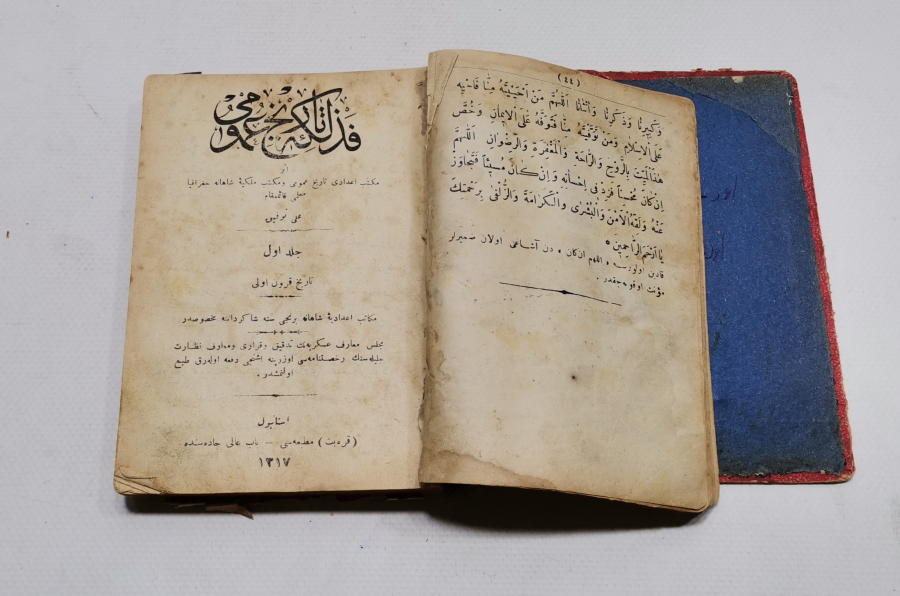 فذلكۀ تاريخ عمومى
اثر
مكتب اعدادى تاريخ عمومى و مكتب ملكيۀ شاهانه جغرافيا
معلمى قائممقام
على توفيق
جلد اول
تاريخ قرون اولى
مكاتب اعداديۀ شاهانه برنجى سنه شاكرداننه مخصوصدر
مجلس معارف عسكريه‌نك تدقيق و قرارى و معارف نظارت
جليله‌سنك رخصتنامه‌سى اوزرينه بشنجى دفعه اوله‌رق طبع
اولنمشدر.
استانبول
(قره‌بت) مطبعه‌سى — باب عالى جاده‌سنده
١٣١٧
(٤٤)
وَكَبِيرِنَا وَذَكَرِنَا وَاُنْثَانَا اَللّٰهُمَّ مَنْ اَحْيَيْتَهُ مِنَّا فَاَحْيِهِ
عَلَى الْاِسْلَامِ وَمَنْ تَوَفَّيْتَهُ مِنَّا فَتَوَفَّهُ عَلَى الْاِيمَانِ وَخُصَّ
هٰذَا الْمَيِّتَ بِالرَّوْحِ وَالرَّاحَةِ وَالْمَغْفِرَةِ وَالرِّضْوَانِ اَللّٰهُمَّ
اِنْ كَانَ مُحْسِنًا فَزِدْ فِى اِحْسَانِهِ وَاِنْ كَانَ مُسِيئًا فَتَجَاوَزْ
عَنْهُ وَلَقِّهِ الْاَمْنَ وَالْبُشْرَى وَالْكَرَامَةَ وَالزُّلْفَى بِرَحْمَتِكَ
يَا اَرْحَمَ الرَّاحِمِينَ ٥
قادين اولورسه « اللهم ان كان » دن آشاغى اولان ضميرلر
مؤنث اوقونه‌جقدر.